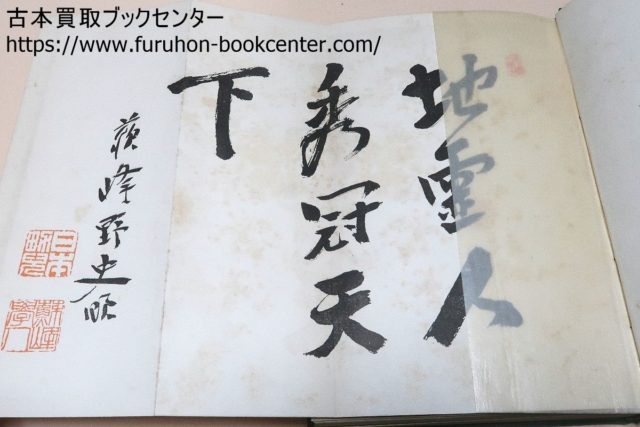 古本買取ブックセンター
https://www.furuhon-bookcenter.com/
地靈人
秀冠天
下
蘇峰野史